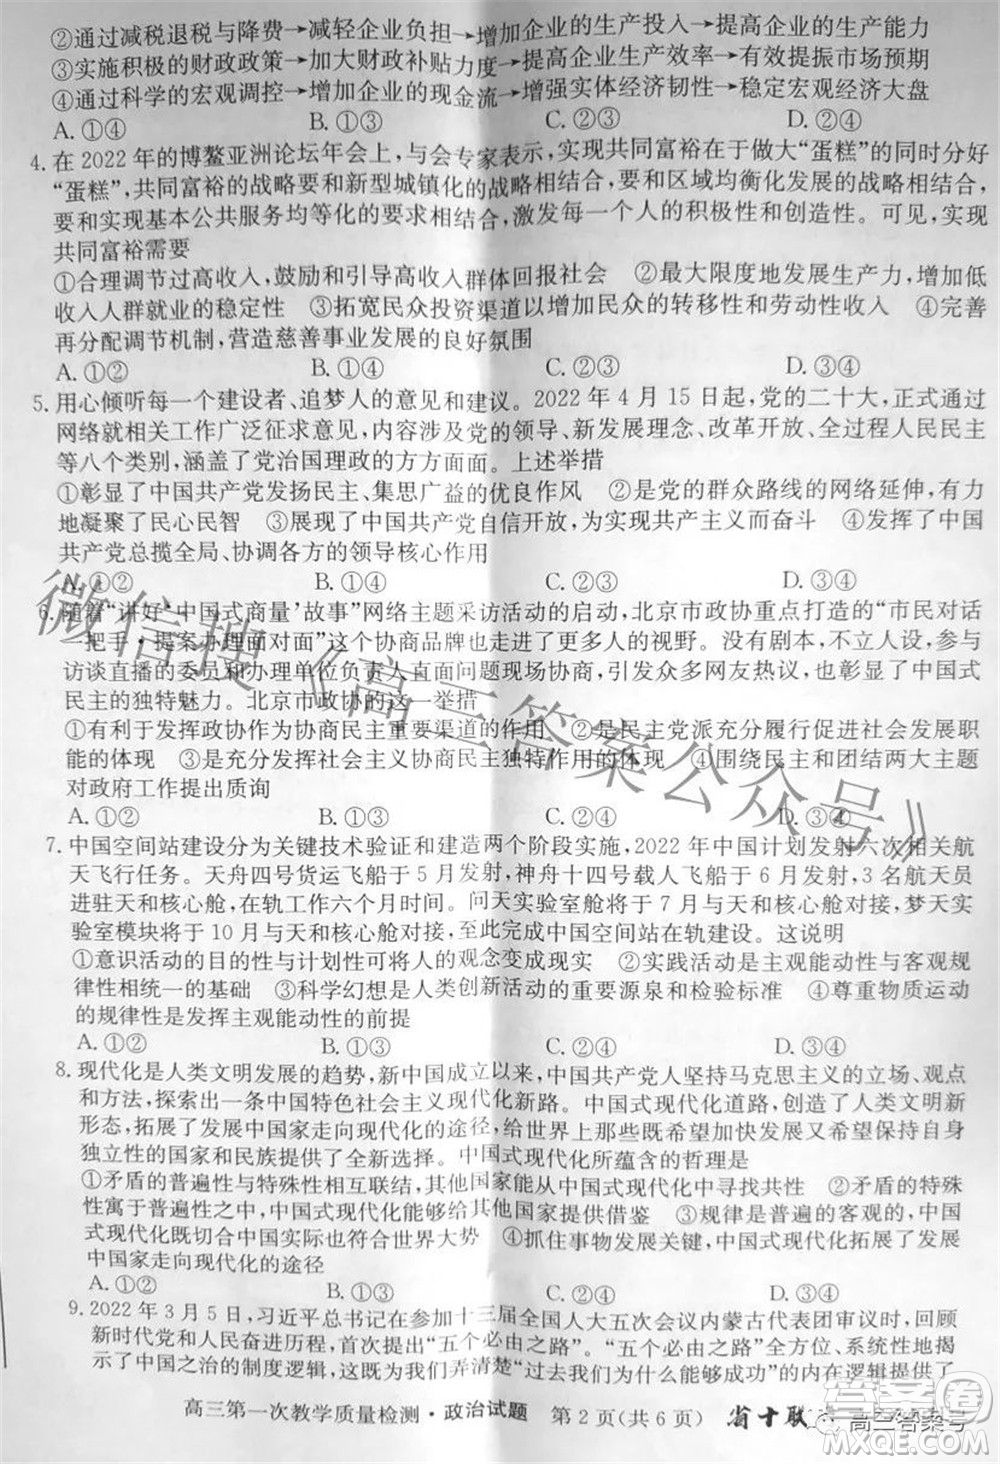 ②通过减税退税与降费→减轻企业负担→增加企业的生产投入→提高企业的生产能力
③实施积极的财政政策→加大财政补贴力度→提高企业生产效率→有效提振市场预期
④通过科学的宏观调控→增加企业的现金流→增强实体经济韧性→稳定宏观经济大盘
A. ①④ B. ①③ C. ②③ D. ②④
4. 在 2022 年的博鳌亚洲论坛年会上,与会专家表示,实现共同富裕在于做大“蛋糕”的同时分好
“蛋糕”,共同富裕的战略要和新型城镇化的战略相结合,要和区域均衡化发展的战略相结合,
要和实现基本公共服务均等化的要求相结合,激发每一个人的积极性和创造性。可见,实现
共同富裕需要
①合理调节过高收入,鼓励和引导高收入群体回报社会 ②最大限度地发展生产力,增加低
收入人群就业的稳定性 ③拓宽民众投资渠道以增加民众的转移性和劳动性收入 ④完善
再分配调节机制,营造慈善事业发展的良好氛围
A. ①② B. ①④ C. ②③ D. ③④
5. 用心倾听每一个建设者、追梦人的意见和建议。2022 年 4 月 15 日起,党的二十大,正式通过
网络就相关工作广泛征求意见,内容涉及党的领导、新发展理念、改革开放、全过程人民民主
等八个类别,涵盖了党治国理政的方方面面。上述举措
①彰显了中国共产党发扬民主、集思广益的优良作风 ②是党的群众路线的网络延伸,有力
地凝聚了民心民智 ③展现了中国共产党自信开放,为实现共产主义而奋斗 ④发挥了中国
共产党总揽全局、协调各方的领导核心作用
A. ①② B. ①④ C. ②③ D. ③④
6. 随着“讲好‘中国式商量’故事”网络主题采访活动的启动,北京市政协重点打造的“市民对话
一把手·提案办理面对面”这个协商品牌也走进了更多人的视野。没有剧本,不立人设,参与
访谈直播的委员和办理单位负责人直面问题现场协商,引发众多网友热议,也彰显了中国式
民主的独特魅力。北京市政协的这一举措
①有利于发挥政协作为协商民主重要渠道的作用 ②是民主党派充分履行促进社会发展职
能的体现 ③是充分发挥社会主义协商民主独特作用的体现 ④围绕民主和团结两大主题
对政府工作提出质询
A. ①② B. ①③ C. ②④ D. ③④
7. 中国空间站建设分为关键技术验证和建造两个阶段实施,2022 年中国计划发射六次相关航
天飞行任务。天舟四号货运飞船于 5 月发射,神舟十四号载人飞船于 6 月发射,3 名航天员
进驻天和核心舱,在轨工作六个月时间。问天实验室舱将于 7 月与天和核心舱对接,梦天实
验室模块将于 10 月与天和核心舱对接,至此完成中国空间站在轨建设。这说明
①意识活动的目的性与计划性可将人的观念变成现实 ②实践活动是主观能动性与客观规
律性相统一的基础 ③科学幻想是人类创新活动的重要源泉和检验标准 ④尊重物质运动
的规律性是发挥主观能动性的前提
A. ①② B. ①③ C. ②④ D. ③④
8. 现代化是人类文明发展的趋势,新中国成立以来,中国共产党人坚持马克思主义的立场、观点
和方法,探索出一条中国特色社会主义现代化新路。中国式现代化道路,创造了人类文明新
形态,拓展了发展中国家走向现代化的途径,给世界上那些既希望加快发展又希望保持自身
独立性的国家和民族提供了全新选择。中国式现代化所蕴含的哲理是
①矛盾的普遍性与特殊性相互联结,其他国家能从中国式现代化中寻找共性 ②矛盾的特殊
性寓于普遍性之中,中国式现代化能够给其他国家提供借鉴 ③规律是普遍的客观的,中国
式现代化既切合中国实际也契合世界大势 ④抓住事物发展关键,中国式现代化拓展了发展
中国家走向现代化的途径
A. ①② B. ①③ C. ②④ D. ③④
9. 2022 年 3 月 5 日,习近平总书记在参加十三届全国人大五次会议内蒙古代表团审议时,回顾
新时代党和人民奋进历程,首次提出“五个必由之路”。“五个必由之路”全方位、系统性地揭
示了中国之治的制度逻辑,这既为我们弄清楚“过去我们为什么能够成功”的内在逻辑提供了
高三第一次教学质量检测·政治试题 第 2 页(共 6 页) 省十联
高三答案号
微信搜《高三答案公众号》
答案圈
MXQE.COM